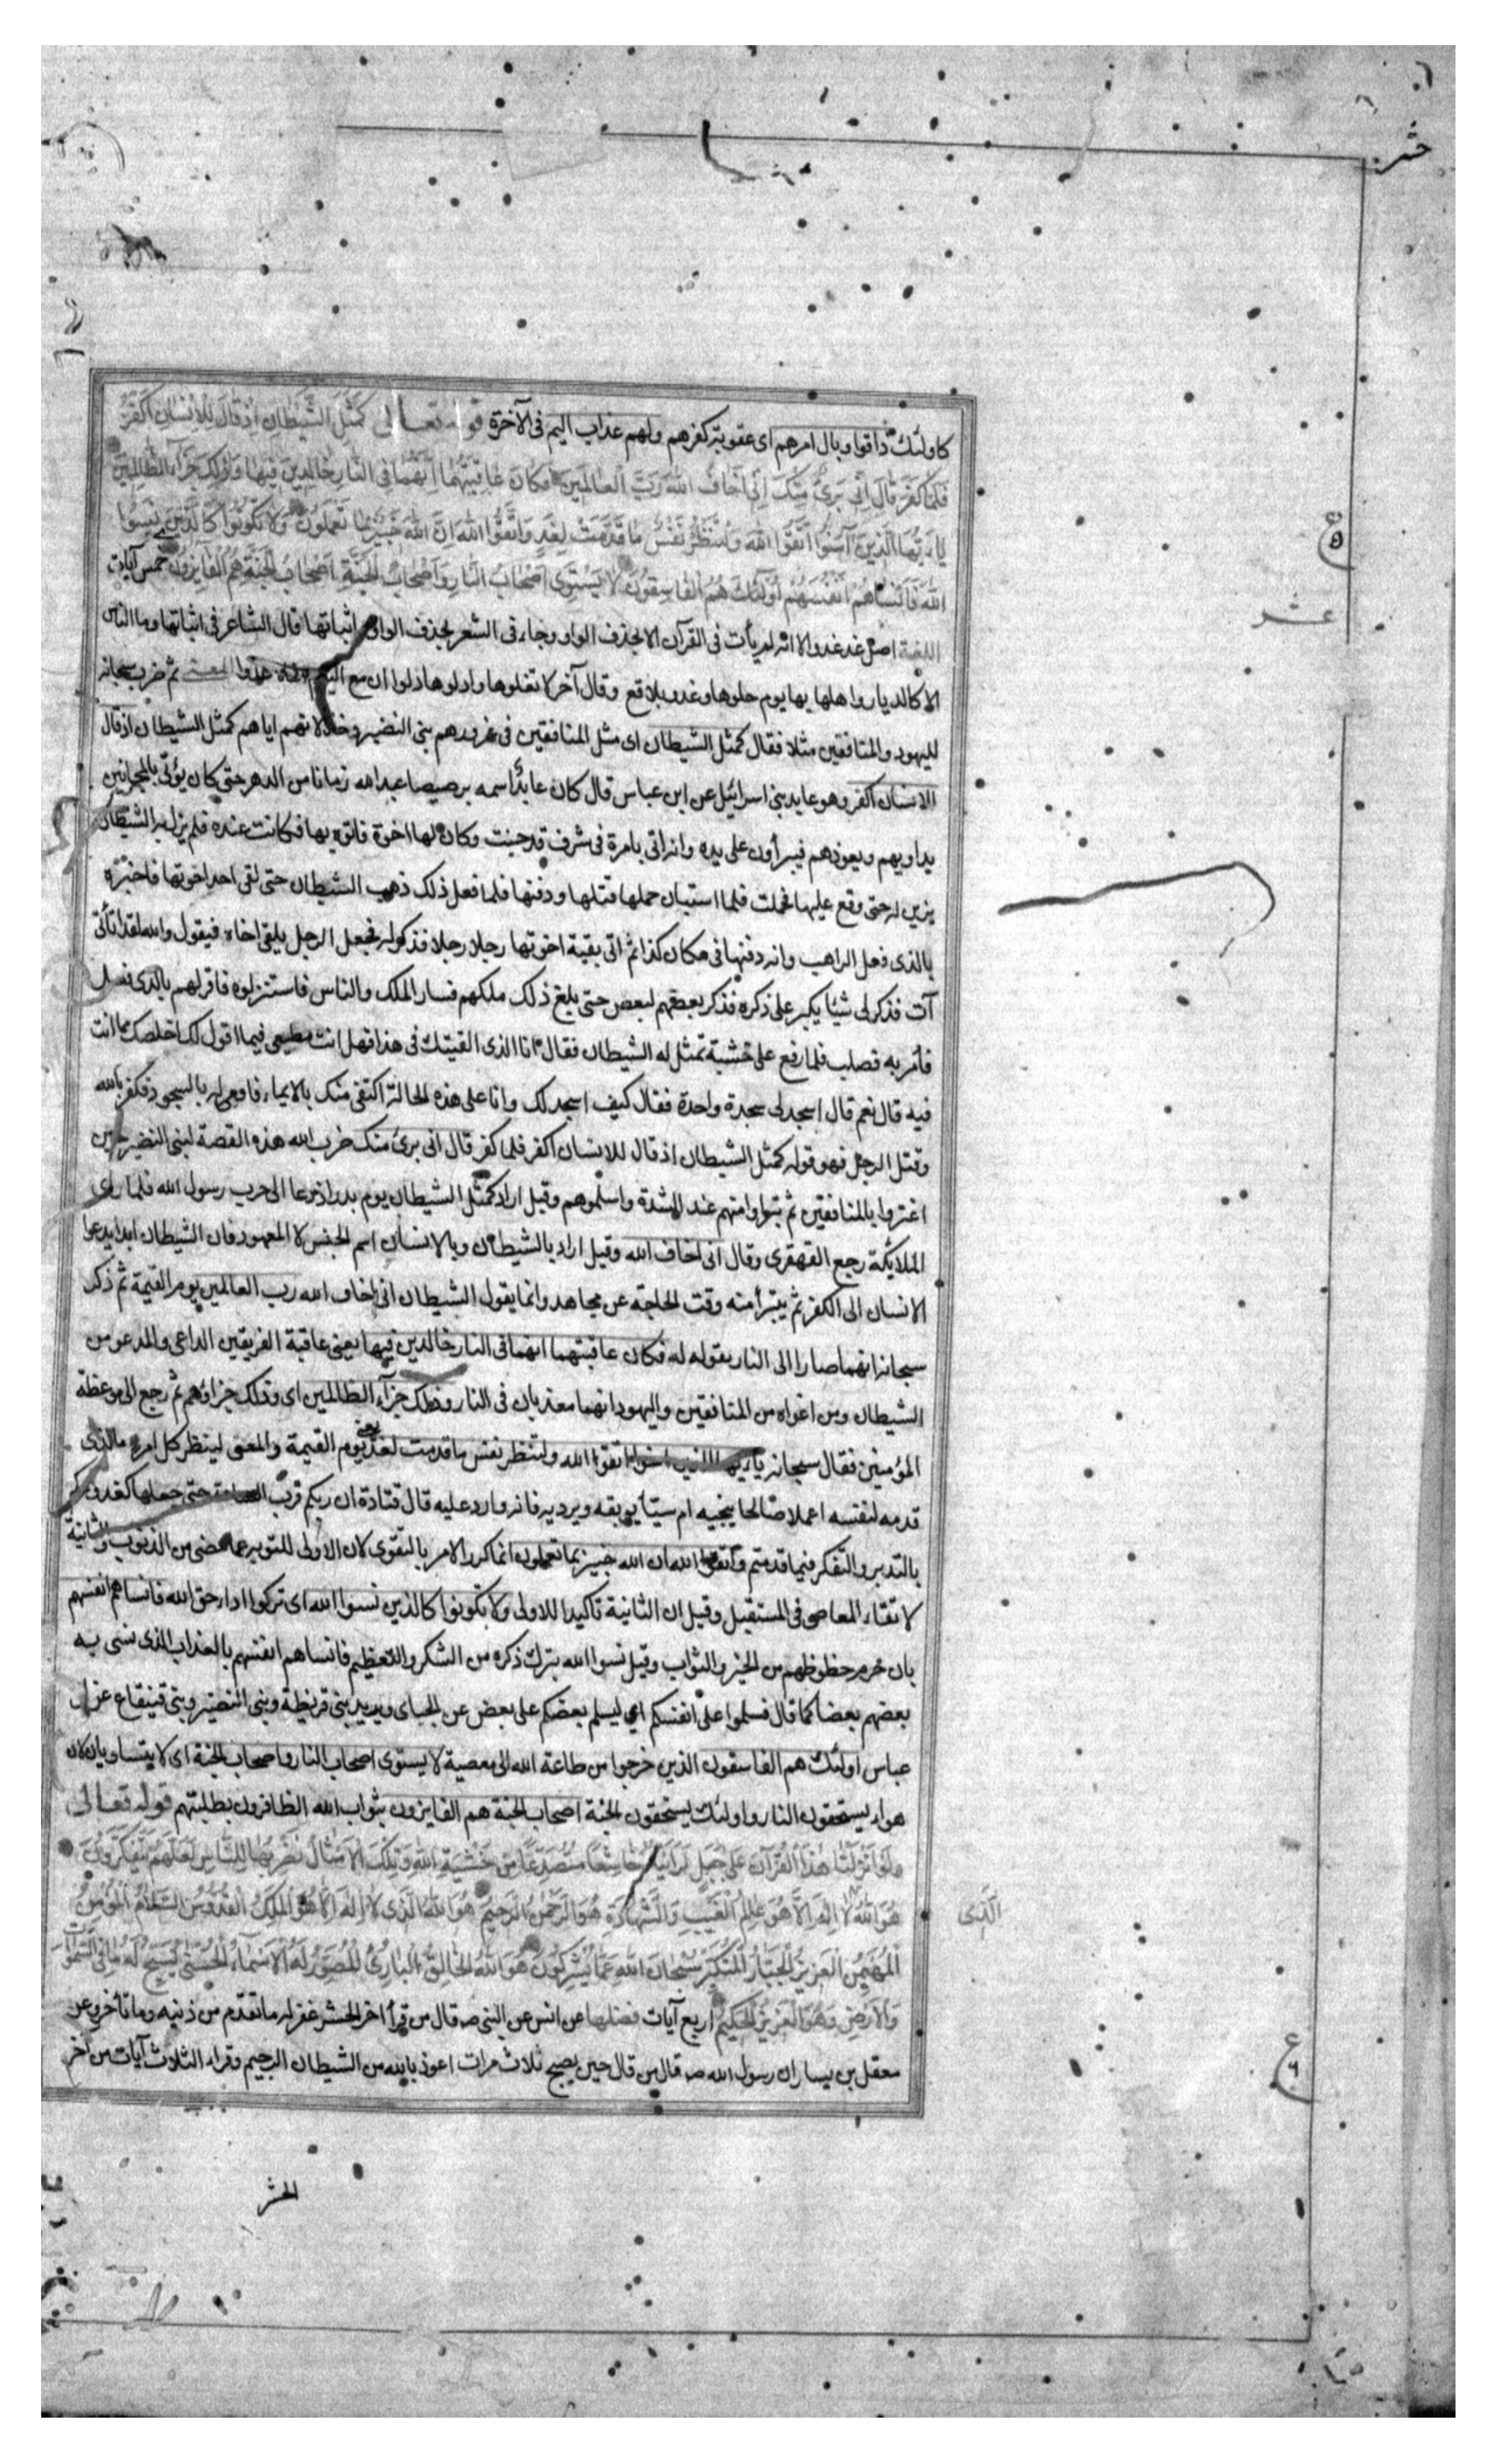 حشر
كاولئك ذاقوا وبال امرهم اى عقوبة كفرهم ولهم عذاب اليم فى الآخرة قوله تعالى كَمَثَلِ الشَّيْطانِ اِذْ قالَ لِلْاِنْسانِ اكْفُرْ
فَلَمّا كَفَرَ قالَ اِنّى بَرِىٌٔ مِنْكَ اِنّى اَخافُ اللهَ رَبَّ الْعالَمينَ فَكانَ عاقِبَتَهُما اَنَّهُما فِى النّارِ خالِدَيْنِ فيها وَذٰلِكَ جَزآءُ الظّالِمينَ
يا اَيُّهَا الَّذينَ آمَنُوا اتَّقُوا اللهَ وَلْتَنْظُرْ نَفْسٌ ما قَدَّمَتْ لِغَدٍ وَاتَّقُوا اللهَ اِنَّ اللهَ خَبيرٌ بِما تَعْمَلُونَ وَلا تَكُونُوا كَالَّذينَ نَسُوا
اللهَ فَاَنْساهُمْ اَنْفُسَهُمْ اُولٰئِكَ هُمُ الْفاسِقُونَ لا يَسْتَوى اَصْحابُ النّارِ وَاَصْحابُ الْجَنَّةِ اَصْحابُ الْجَنَّةِ هُمُ الْفآيِزُونَ خمس آيات
عشر
اللغة اصل غد غدو الا انه لم يأت فى القرآن الا بحذف الواو وجاء فى الشعر بحذف الواو واثباتها قال الشاعر فى اثباتها وما الناس
الا كالديار واهلها بها يوم حلوها وغدوا بلاقع وقال آخر لا تغلوها وادلوها دلوا ان مع اليوم اخاه غدوا المعنى ثم ضرب سبحانه
لليهود والمنافقين مثلا فقال كمثل الشيطان اى مثل المنافقين فى غرورهم بنى النضير وخذلانهم اياهم كمثل الشيطان اذ قال
للانسان اكفر وهو عابد بنى اسرائيل عن ابن عباس قال كان عابد اسمه برصيصا عبد الله زمانا من الدهر حتى كان يؤتى بالمجانين
يداويهم ويعوذهم فيبرأون على يده وانه اتى بامرة فى شرف قد جنت وكان لها اخوة فاتوه بها فكانت عنده فلم يزل به الشيطان
يزين له حتى وقع عليها فحملت فلما استبان حملها قتلها ودفنها فلما فعل ذلك ذهب الشيطان حتى لقى احد اخوتها فاخبره
بالذى فعل الراهب وانه دفنها فى مكان كذا ثم اتى بقية اخوتها رجلا رجلا فذكر له فجعل الرجل يلقى اخاه فيقول والله لقد اتانى
آت فذكر لى شيئا يكبر على ذكره فذكر بعضهم لبعض حتى بلغ ذلك ملكهم فسار الملك والناس فاستنزلوه فاقر لهم بالذى فعل
فأمر به فصلب فلما رفع على خشبة تمثل له الشيطان فقال انا الذى القيتك فى هذا فهل انت مطيعى فيما اقول لك اخلصك مما انت
فيه قال نعم قال اسجد لى سجدة واحدة فقال كيف اسجد لك وانا على هذه الحالة اكتفى منك بالايماء فاومى له بالسجود فكفر بالله
وقتل الرجل فهو قوله كمثل الشيطان اذ قال للانسان اكفر فلما كفر قال انى برئ منك ضرب الله هذه القصة لبنى النضير حين
اغتروا بالمنافقين ثم تبراوا منهم عند الشدة واسلموهم وقيل اراد كمثل الشيطان يوم بدر اذ دعا الى حرب رسول الله فلما راى
الملايكة رجع القهقرى وقال انى اخاف الله وقيل اراد بالشيطان وبالانسان اسم الجنس لا المعهود فان الشيطان ابدا يدعوا
الانسان الى الكفر ثم يتبرأ منه وقت الحاجة عن مجاهد وانما يقول الشيطان انى اخاف الله رب العالمين يوم القيمة ثم ذكر
سبحانه انهما صارا الى النار بقوله له فكان عاقبتهما انهما فى النار خالدين فيها يعنى عاقبة الفريقين الداعى والمدعو من
الشيطان ومن اغواه من المنافقين واليهود انهما معذبان فى النار وذلك جزآء الظالمين اى وذلك جزاؤهم ثم رجع الى موعظة
المؤمنين فقال سبحانه يا ايها الذين امنوا اتقوا الله ولتنظر نفس ما قدمت لغد يعنى يوم القيمة والمعنى لينظر كل امرء ما الذى
قدمه لنفسه اعملا صالحا ينجيه ام سيئا يوبقه ويرديه فانه وارد عليه قال قتادة ان ربكم قرب الساعة حتى جعلها كغد
بالتدبر والتفكر فيما قدمتم واتقوا الله ان الله خبير بما تعملون انما كرر الامر بالتقوى لان الاولى للتوبة عما مضى من الذنوب والثانية
لاتقاء المعاصى فى المستقبل وقيل ان الثانية تأكيدا للاولى ولا تكونوا كالذين نسوا الله اى تركوا اداء حق الله فانساهم انفسهم
بان حرمهم حظوظهم من الخير والثواب وقيل نسوا الله بترك ذكره من الشكر والتعظيم فانساهم انفسهم بالعذاب الذى نسى به
بعضهم بعضا كما قال فسلموا على انفسكم اى ليسلم بعضكم على بعض عن الجبائى ويريد بنى قريظة وبنى النضير وبنى قينقاع عن ابن
عباس اولئك هم الفاسقون الذين خرجوا من طاعة الله الى معصية لا يستوى اصحاب النار واصحاب الجنة اى لا يتساويان لان
هؤلاء يستحقون النار واولئك يستحقون الجنة اصحاب الجنة هم الفايزون بثواب الله الظافرون بطلبتهم قوله تعالى
لَوْ اَنْزَلْنا هٰذَا الْقُرْآنَ عَلى جَبَلٍ لَرَاَيْتَهُ خاشِعًا مُتَصَدِّعًا مِنْ خَشْيَةِ اللهِ وَتِلْكَ الْاَمْثالُ نَضْرِبُها لِلنّاسِ لَعَلَّهُمْ يَتَفَكَّرُونَ
هُوَ اللهُ لا اِلٰهَ اِلّا هُوَ عالِمُ الْغَيْبِ وَالشَّهادَةِ هُوَ الرَّحْمٰنُ الرَّحيمُ هُوَ اللهُ الَّذى لا اِلٰهَ اِلّا هُوَ الْمَلِكُ الْقُدُّوسُ السَّلامُ الْمُؤْمِنُ
الَّذى
الْمُهَيْمِنُ الْعَزيزُ الْجَبّارُ الْمُتَكَبِّرُ سُبْحانَ اللهِ عَمّا يُشْرِكُونَ هُوَ اللهُ الْخالِقُ الْبارِئُ الْمُصَوِّرُ لَهُ الْاَسْمآءُ الْحُسْنى يُسَبِّحُ لَهُ ما فِى السَّمٰواتِ
وَالْاَرْضِ وَهُوَ الْعَزيزُ الْحَكيمُ اربع آيات فضلها عن انس عن النبى صـ قال من قرأ اخر الحشر غفر له ما تقدم من ذنبه وما تأخر وعن
معقل بن يسار ان رسول الله صـ قال من قال حين يصبح ثلاث مرات اعوذ بالله من الشيطان الرجيم وقراء الثلاث آيات من آخر
الحشر